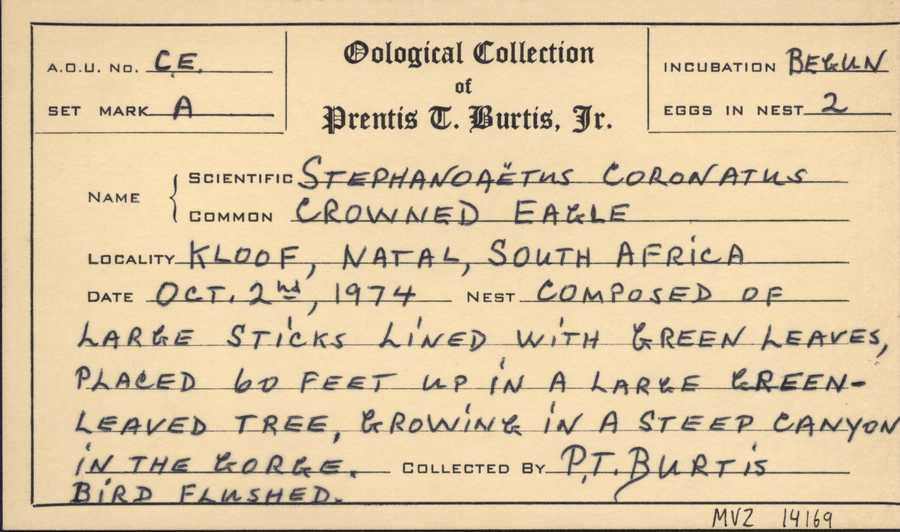 A.O.U. No. C.E.
Oological Collection
INCUBATION BEGUN
SET MARK A
of
EGGS IN NEST 2
Prentis T. Burtis, Jr.
NAME
SCIENTIFIC STEPHANOAËTUS CORONATUS
COMMON CROWNED EAGLE
LOCALITY KLOOF, NATAL, SOUTH AFRICA
DATE OCT. 2nd, 1974 NEST COMPOSED OF
LARGE STICKS LINED WITH GREEN LEAVES,
PLACED 60 FEET UP IN A LARGE GREEN-
LEAVED TREE, GROWING IN A STEEP CANYON
IN THE GORGE. COLLECTED BY P.T. BURTIS
BIRD FLUSHED.
MVZ 14169